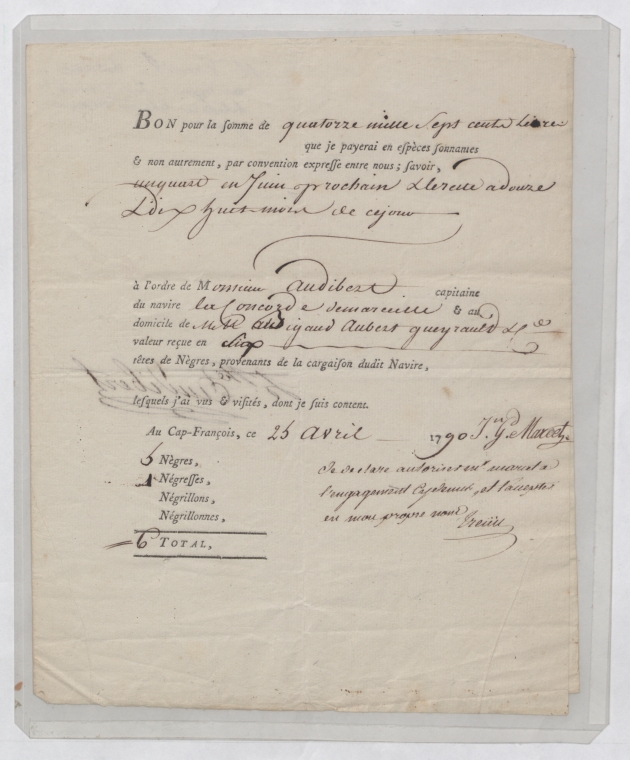 BON pour la somme de quatorze mille Sept cents Livres
que je payerai en espèces sonnantes
& non autrement, par convention expresse entre nous ; savoir,
un quart en Juin prochain & le reste a douze
& dix huit mois de ce jour
à l'ordre de Monsieur Audibert capitaine
du navire la Concorde de marseille & au
domicile de Aubert queyrault
valeur reçue en Six
têtes de Nègres, provenants de la cargaison dudit Navire,
lesquels j'ai vus & visités, dont je suis content.
Au Cap-François, ce 25 Avril 1790
5 Nègres,
1 Négresses,
Négrillons,
Négrillonnes,
6 TOTAL,
Je declare autoriser mr marcet a
l'engagement Cydessus, et l'accepter
en mon propre nom